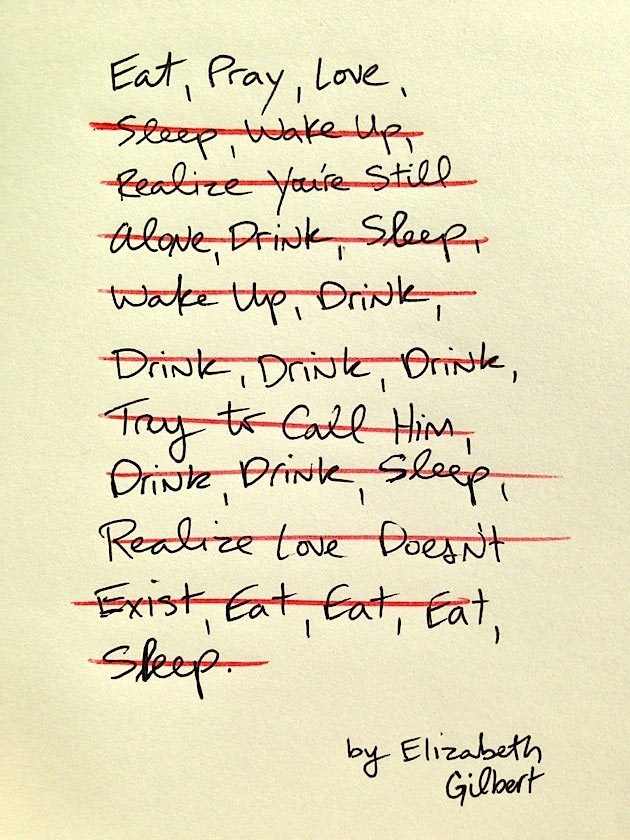 Eat, Pray, Love,
Sleep, Wake Up,
Realize You're Still
Alone, Drink, Sleep,
Wake Up, Drink,
Drink, Drink, Drink,
Try to Call Him,
Drink, Drink, Sleep,
Realize Love Doesn't
Exist, Eat, Eat, Eat,
Sleep.
by Elizabeth
Gilbert